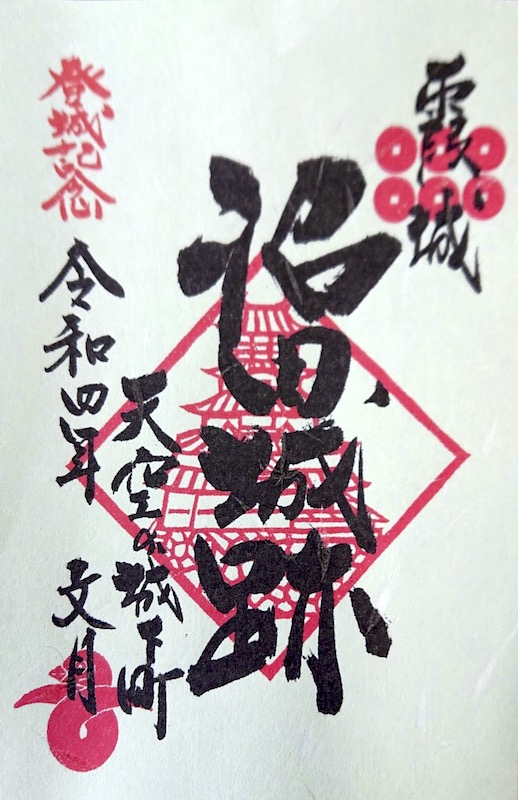 霞城
沼田城跡
天空の城下町
登城記念
令和四年 文月